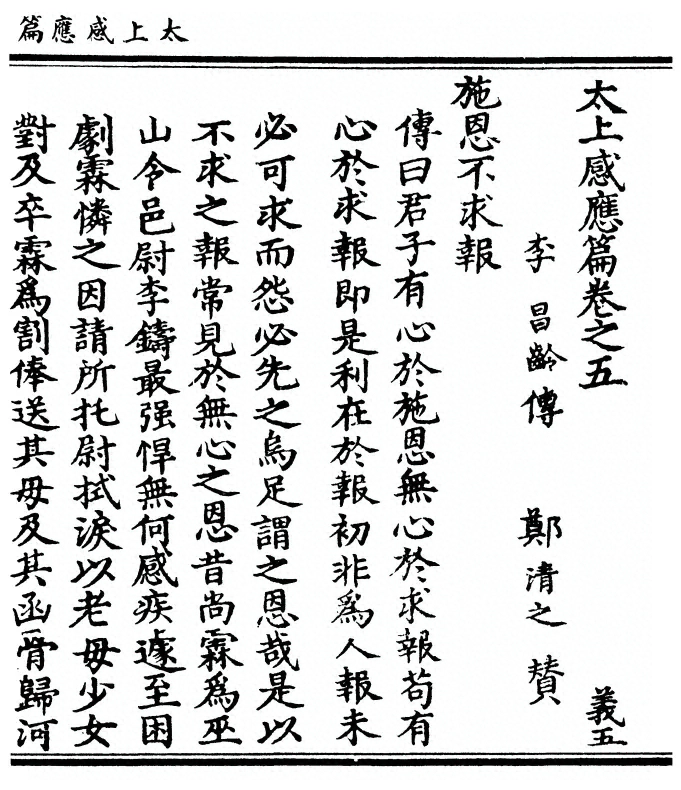 太上感應篇
太上感應篇卷之五
義五
李昌齡傳 鄭清之贊
施恩不求報
傳曰君子有心於施恩無心於求報苟有
心於求報即是利在於報初非爲人報未
必可求而怨必先之烏足謂之恩哉是以
不求之報常見於無心之恩昔尚霖爲巫
山令邑尉李鑄最强悍無何感疾遽至困
劇霖憐之因請所托尉拭淚以老母少女
對及卒霖爲割俸送其母及其函骨歸河